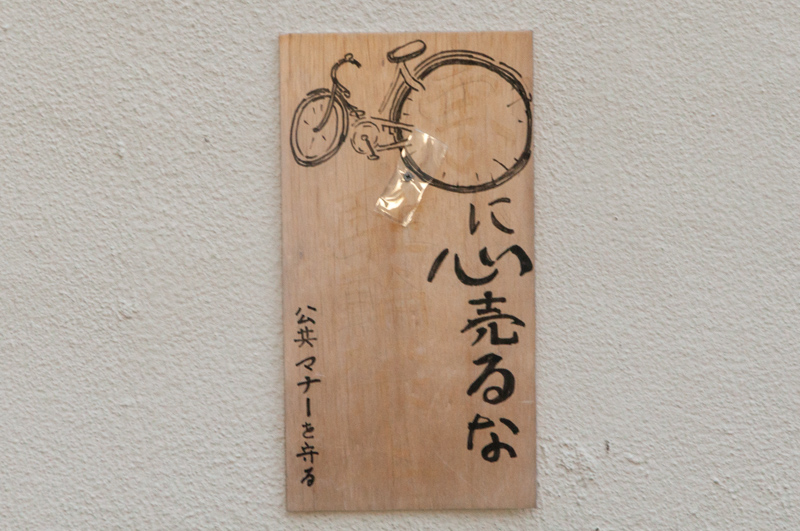 に心売るな
公共マナーを弁る